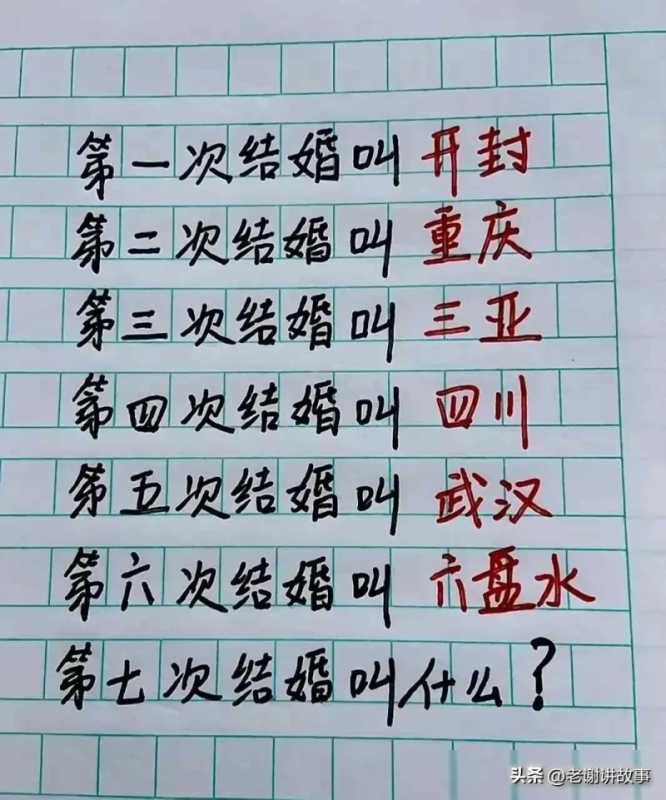 第一次结婚叫开封
第二次结婚叫重庆
第三次结婚叫三亚
第四次结婚叫四川
第五次结婚叫武汉
第六次结婚叫六盘水
第七次结婚叫什么?
头条 @老谢讲故事